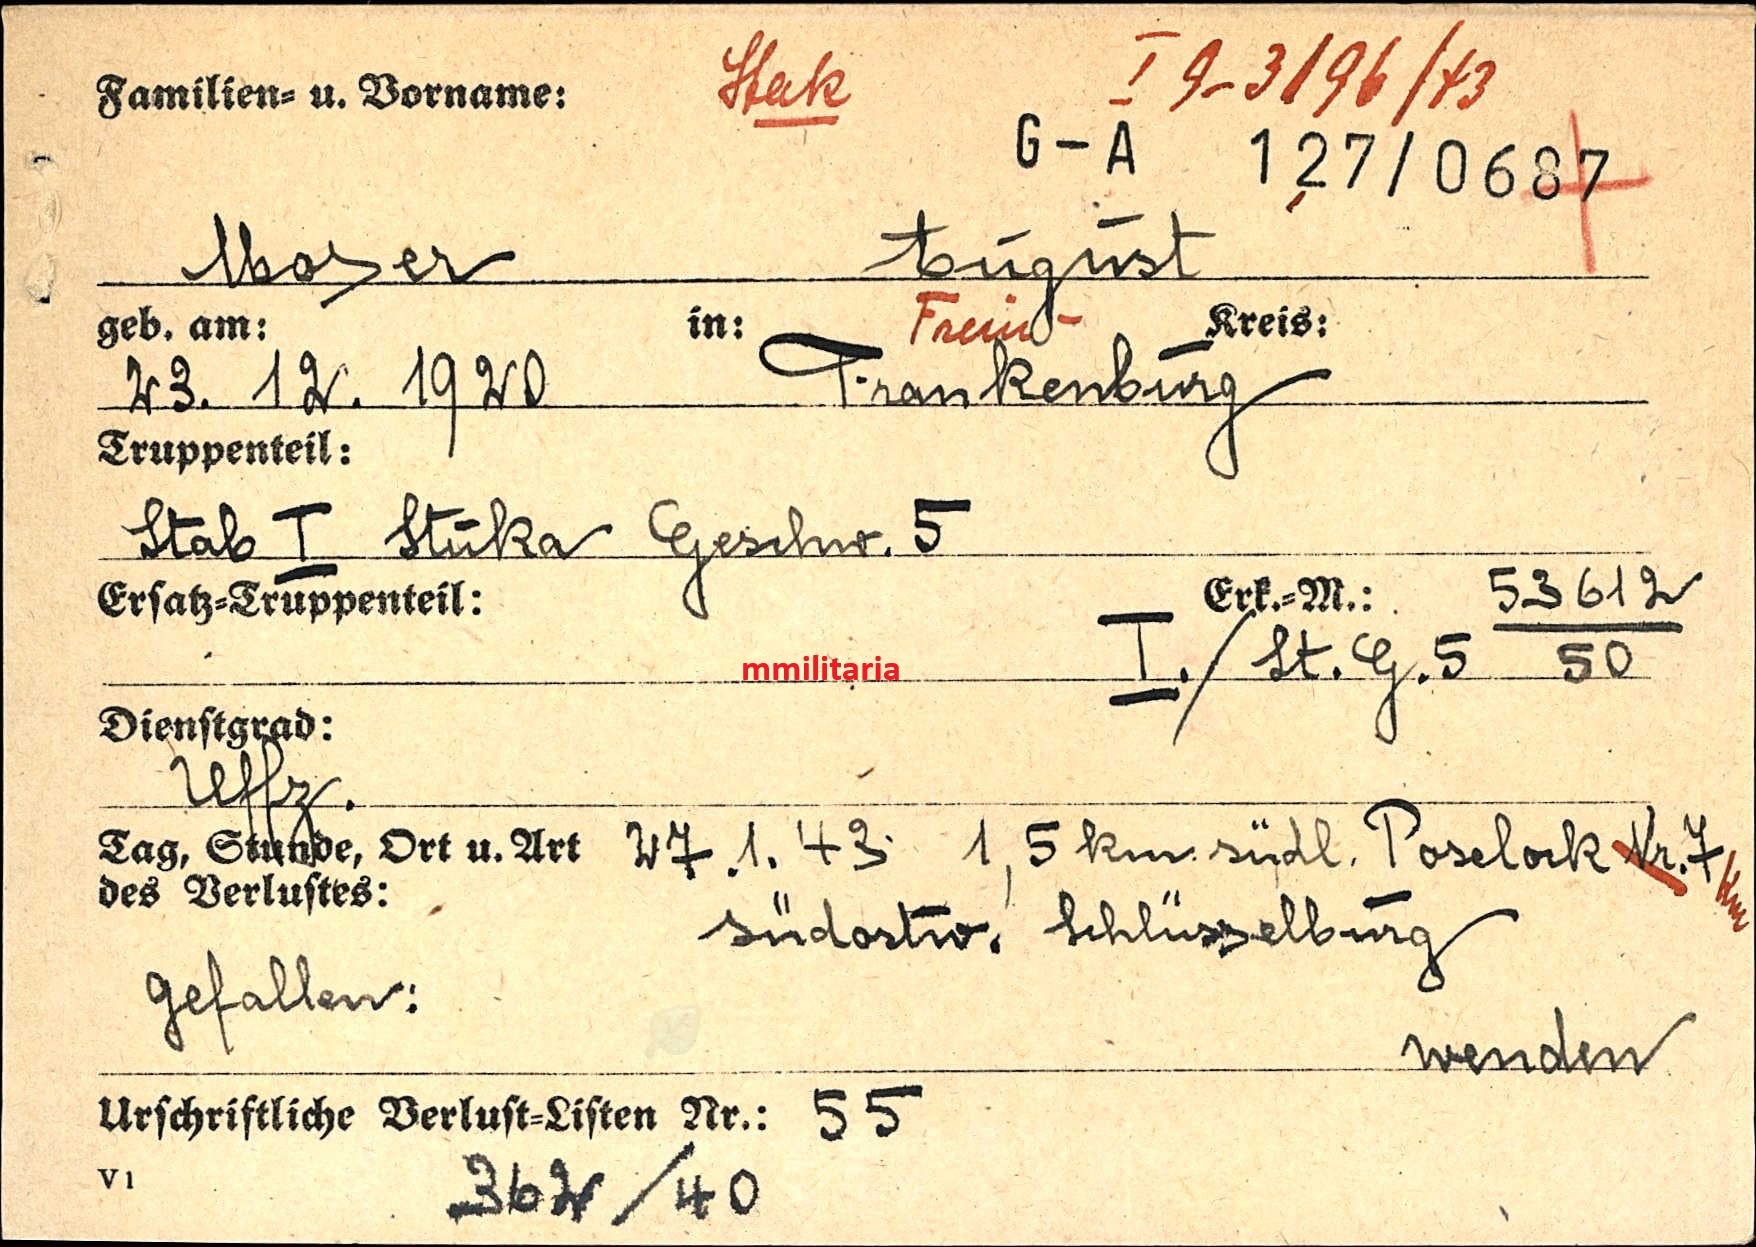 Familien- u. Vorname: I 9-3196/43
G-A 127/0687
Moser August
geb. am: in: Kreis:
23. 12. 1920 Frankenburg
Truppenteil:
Stab I Stuka Geschw. 5
Ersatz-Truppenteil: Erk.-M.: 53612
I./St. G. 5 50
mmilitaria
Dienstgrad:
Uffz.
Tag, Stunde, Ort u. Art 27.1.43 1,5 km südl. Poselock Nr. 7
des Verlustes: km
südostw. Schlüsselburg
gefallen:
wenden
Urschriftliche Verlust-Listen Nr.: 55
V 1
362/40